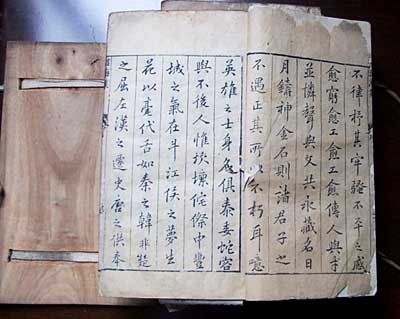 不律抒其牢騷不平之感
愈窮愈工愈工愈傳人與才
並憐聲與文共永藏名日
月鑄神金石則諸君子之
不遇正其所以不朽耳噫
英雄之士身名俱泰委蛇容
與不後人惟坎壈侘傺中豐
城之氣在斗江侯之夢生
花以毫代舌如秦之韓非楚
之屈左漢之遷史唐之供奉